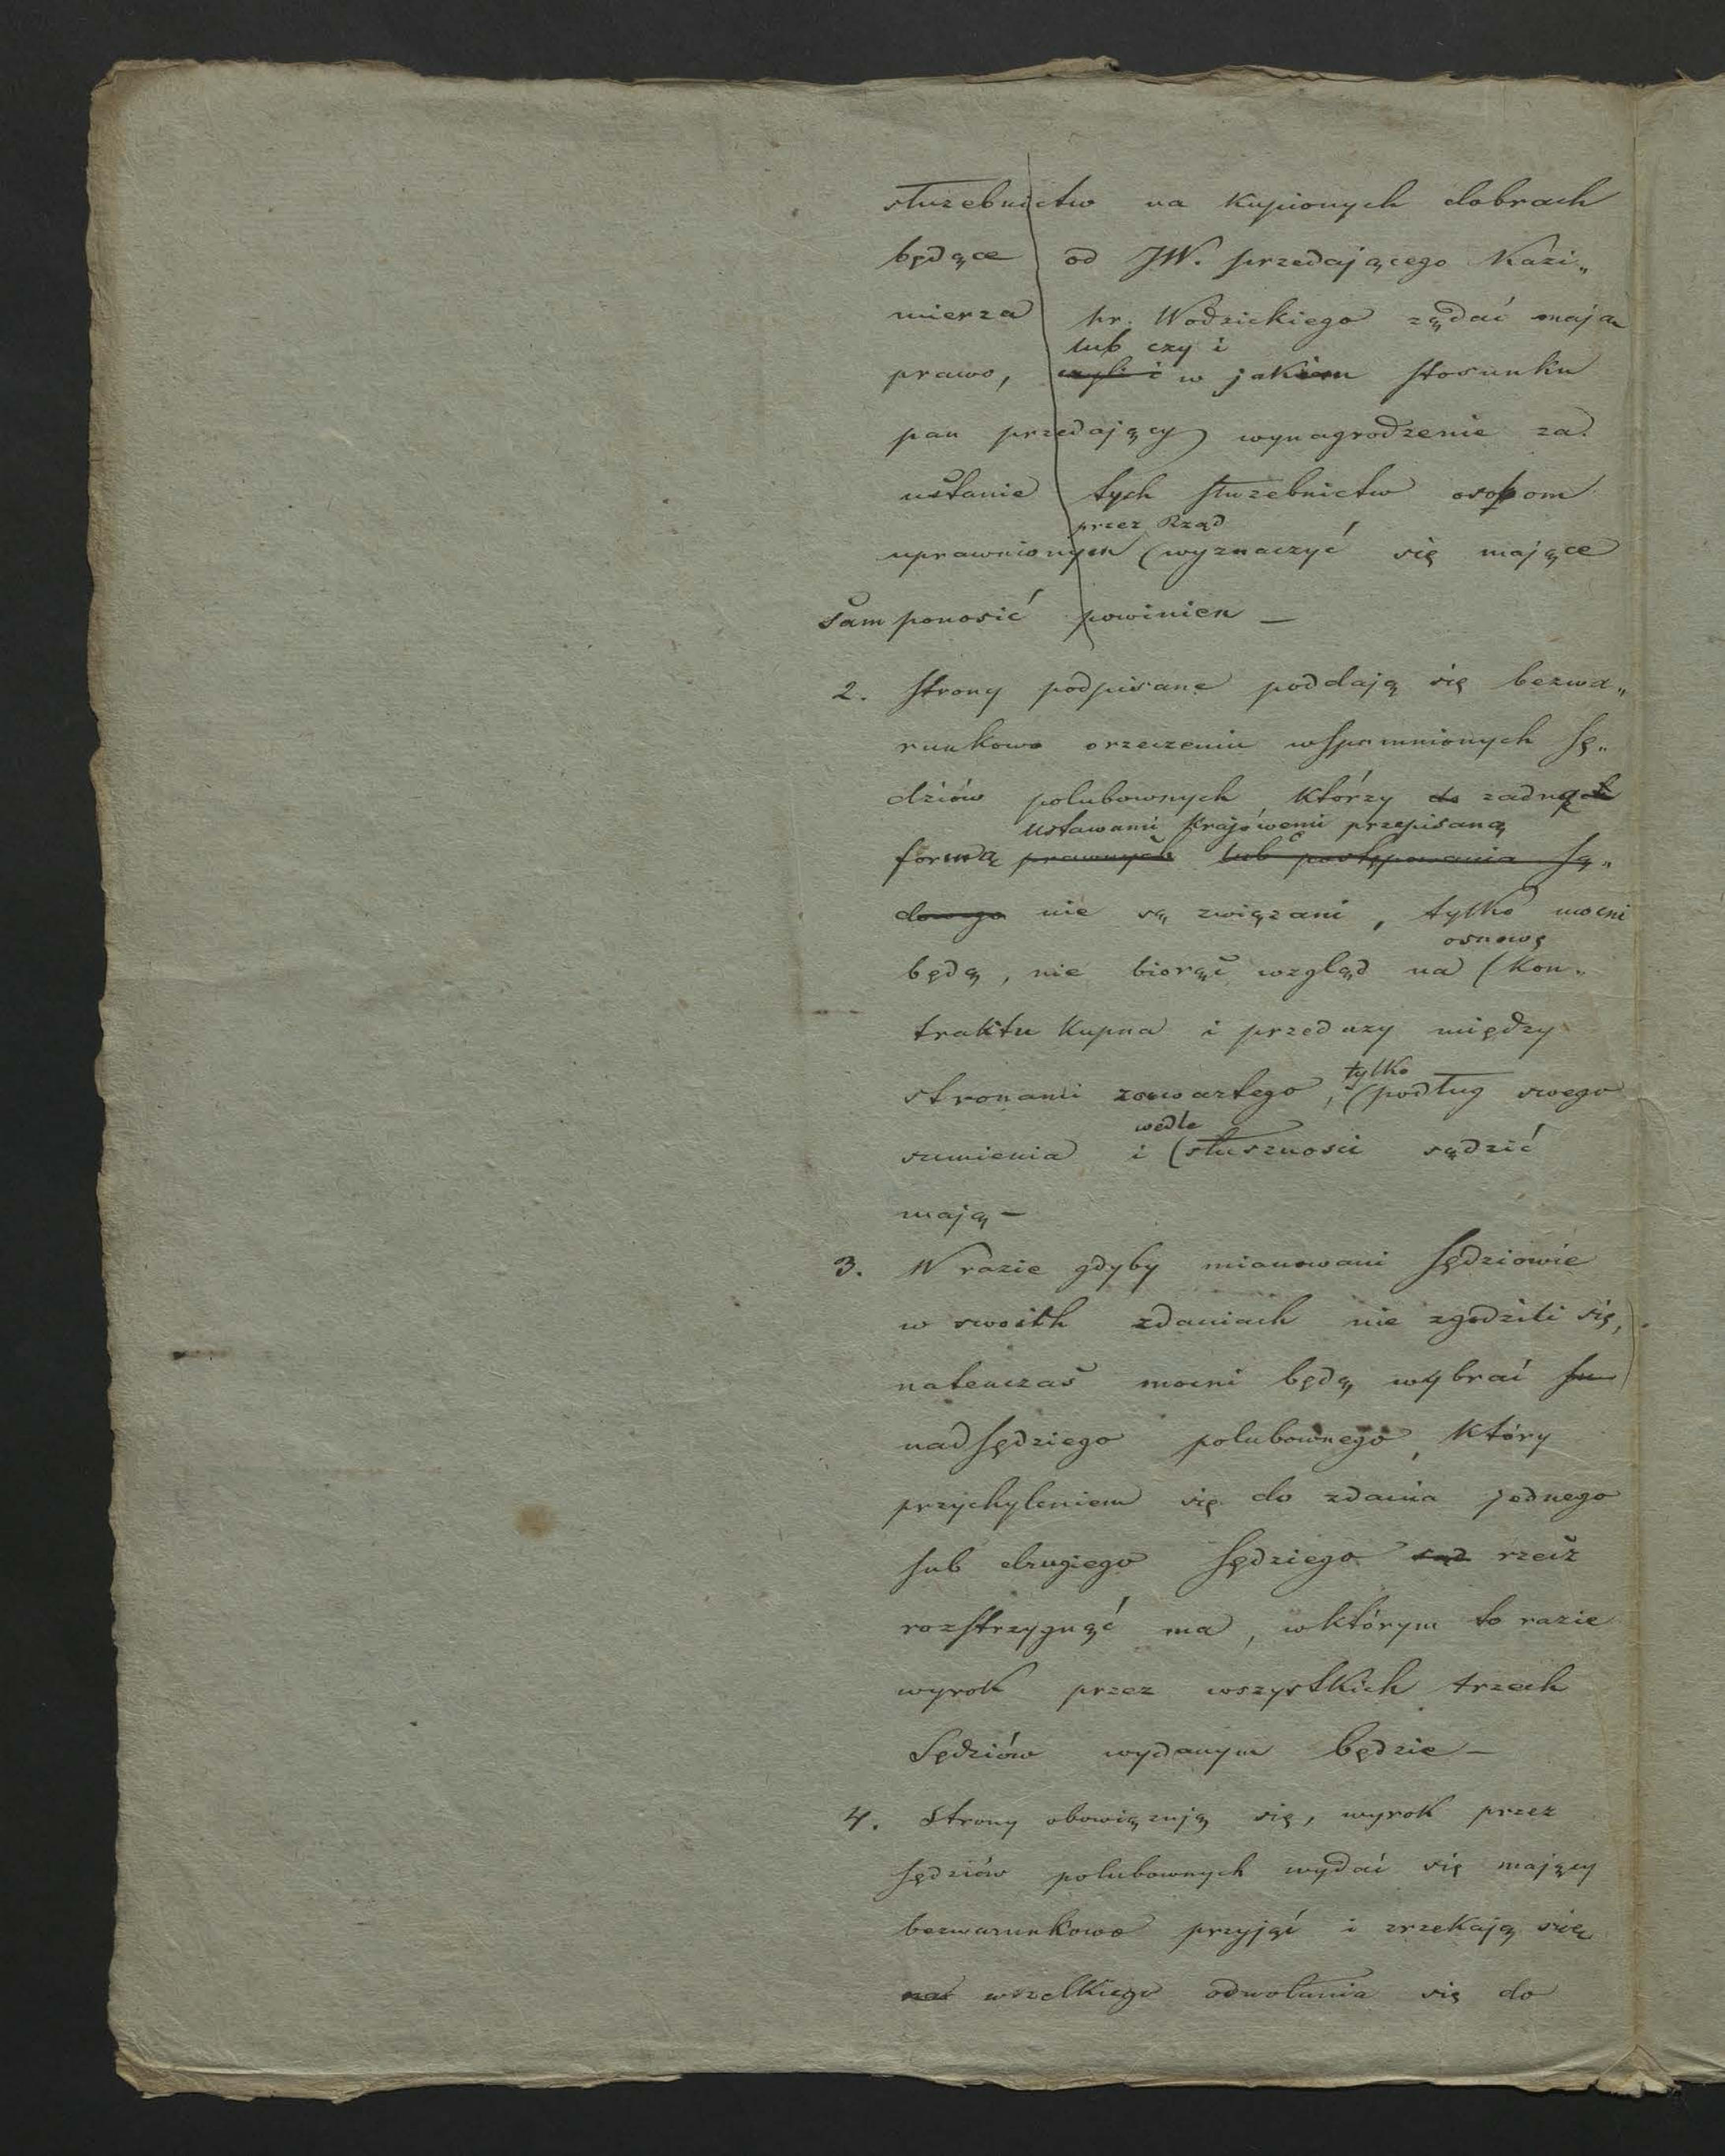 służebnictw na kupionych dobrach
będące od JW. przedającego Kazi„
mierza hr. Wodzickiego żądać mają
lub czy i
prawo, czyli i w jakim stosunku
pan przedający wynagrodzenie za
ustanie tych służebnictw osobom
przez Rząd
uprawnionym (wyznaczyć się mające
sam ponosić powinien —
2. Strony podpisane poddają się bezwa„
runkowo orzeczeniu wspomnionych Sę„
dziów polubownych, którzy do żadną
ustawami krajowemi przepisaną
formą prawnych lub postępowania Są„
dowego nie są związani, tylko mocni
osnowę
będą, nie biorąc wzgląd na (kon„
traktu kupna i przeduży między
tylko
stronami zawartego, (podług swego
wedle
sumienia i (słuszności sądzić
mają —
3. W razie gdyby mianowani Sędziowie
w swoich zdaniach nie zgodzili się,
natenczas mocni będą wybrać
nadsędziego polubownego, który
przychyleniem się do zdania jednego
lub drugiego Sędziego sąd rzecz
rozstrzygnąć ma, w którym to razie
wyrok przez wszystkich trzech
Sędziów wydanym będzie —
4. Strony obowiązują się, wyrok przez
Sędziów polubownych wydać się mający
bezwarunkowo przyjąć i zrzekają się
wszelkiego odwołania się do